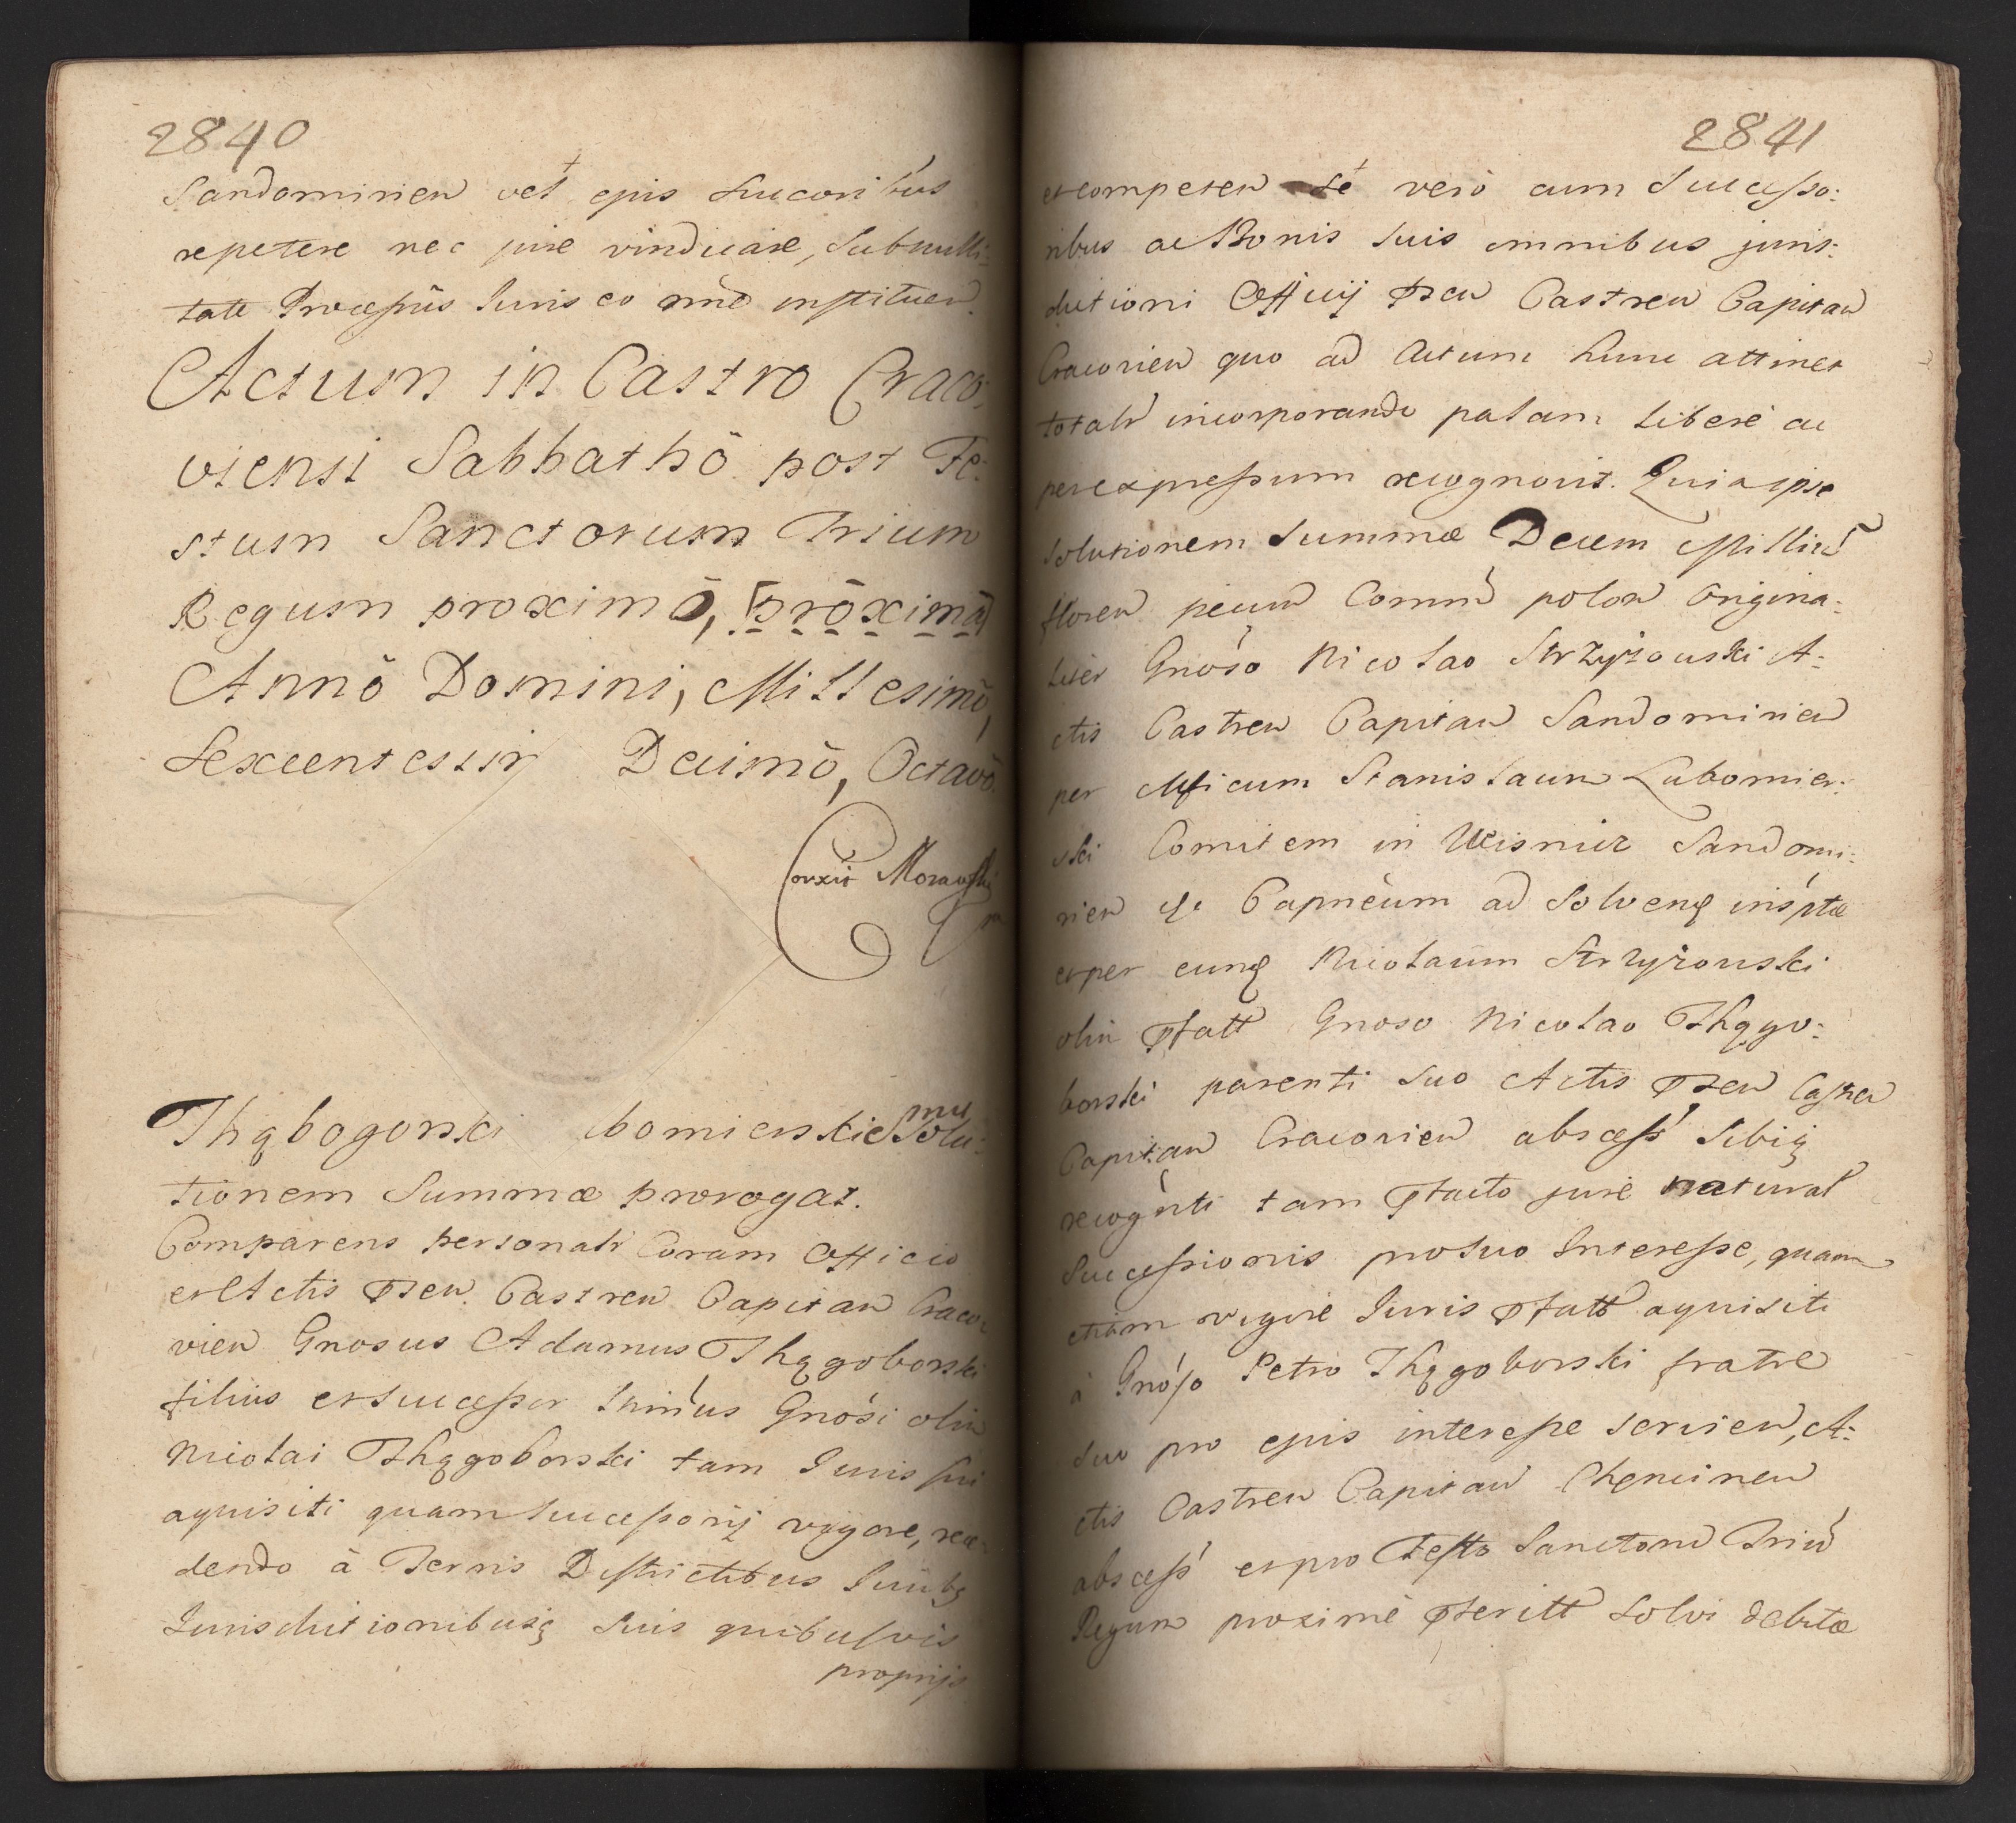 2840
Sandomirien vel ejus succoribus
repetere nec jure vindicare, Sub nulli:
tate Processûs Iuris eo nne instituen
Actum in Castro Craco:
viensi Sabbathō post Fe:
stum Sanctorum Trium
Regum proximō, [prōximā]
Annō Domini, Millesimō,
Sexcentessi Decimō, Octavō.
Corxit Morawski
Thągoborski bomierskie mu Solu:
tionem Summæ prorogat.
Comparens personalr Coram Officio
et Actis pñen Castren Capitan Craco:
vien Gnosus Adamus Thągoborski
filius et successor Gnósi olim
Nicolai Thągoborski tam Iuris sui
aquisiti quam successorij vigore, rece:
dendo à Terris Districtibus
Iurisdictionibusq suis quibusvis
proprijs
2841
et competen sé verò cum Successo:
ribus ac Bonis suis omnibus juris:
dictioni Officij pñen Castren Capitan
Cracovien quo ad Actum hunc attinet
totalr incorporando palam liberè ac
per expressum recognovit. Quia ipse
solutionem summæ Decem Milliu
floren pecun Commu polon Origina:
liter Gnóso Nicolao Strzyżowski A:
ctis Castren Capitan Sandomirien
per Mficum Stanislaum Lubomier:
ski Comitem in Wisnicz Sandomi:
rien Capneum ad solvend insptæ
et per eund Nicolaum Strzyżowski
olim pfatt Gnoso Nicolao Thągo:
borski parenti suo Actis pñen Castren
Capitan Cracovien abscess sibiq
recognti tam pfacto jure natural
Successionis pro suo Interesse, quam
etiam vigore Iuris pfatt aquisiti
à Gnóso Petro Thągoborski fratre
suo pro ejus interesse servien, A:
ctis Castren Capitan Chęncinen
abscess et pro Festo Sanctoru Triu
Regum proximè pteritt solvi debitæ